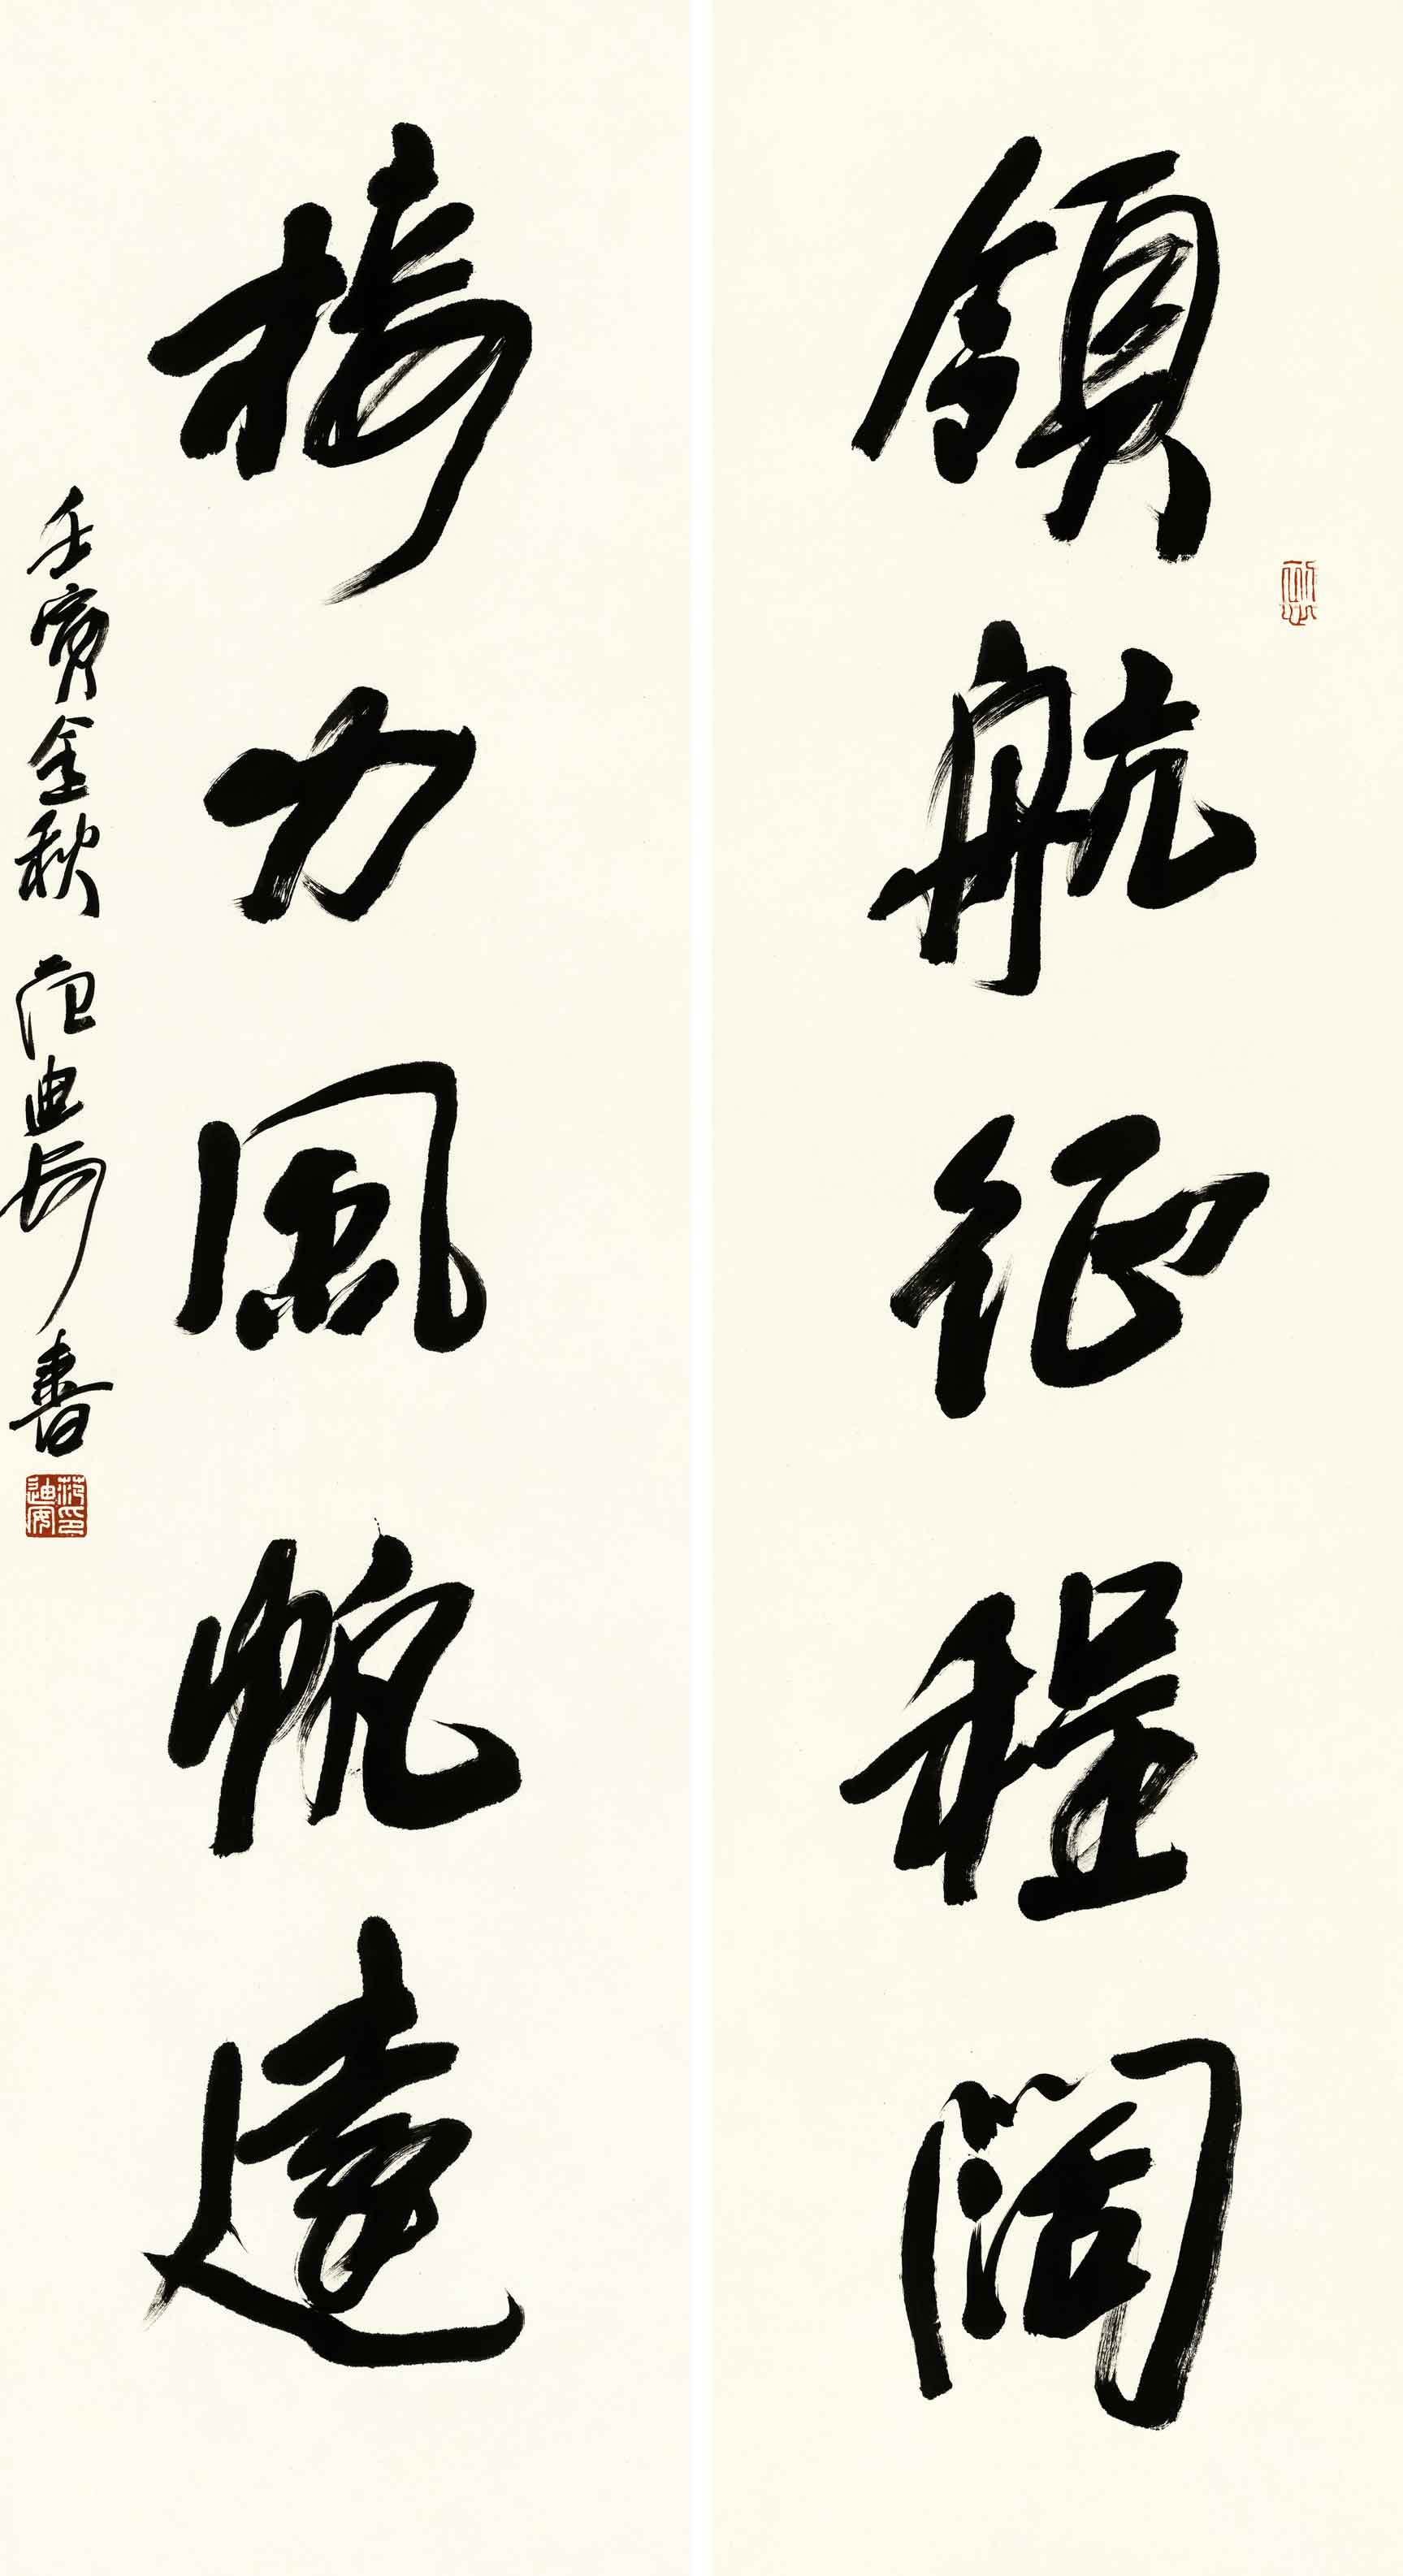 領航征程闊
接力風帆遠
壬寅金秋 范迪安書
范迪安印